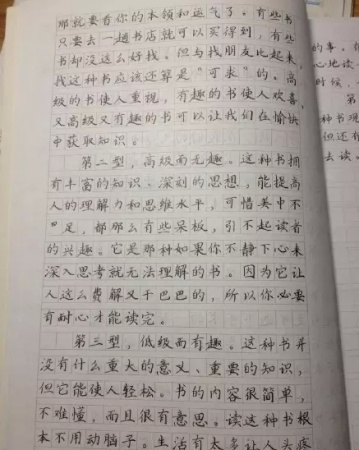 那就要看你的本领和运气了。有些书
只要去一趟书店就可以买得到，有些
书却没这么好找。但与找朋友比起来，
找这种书应该还算是“可求”的。高
级的书使人重视，有趣的书使人欢喜，
又高级又有趣的书可以让我们在愉快
中获取知识。
第二型，高级而无趣。这种书拥
有丰富的知识、深刻的思想，能提高
人的理解力和思维水平，可惜美中不
足，都那么有些呆板，引不起读者
的兴趣。它是那种如果你不静下心来
深入思考就无法理解的书。因为它让
人这么费解又干巴巴的，所以你必要
有耐心才能读完。
第三型，低级而有趣。这种书并
没有什么重大的意义、重要的知识，
但它能使人轻松。书的内容很简单，
不难懂，而且很有意思。读这种书根
本不用动脑子。生活有太多让人头疼
的事，你
心地读
时候，
第
种书观
但还有
去读。